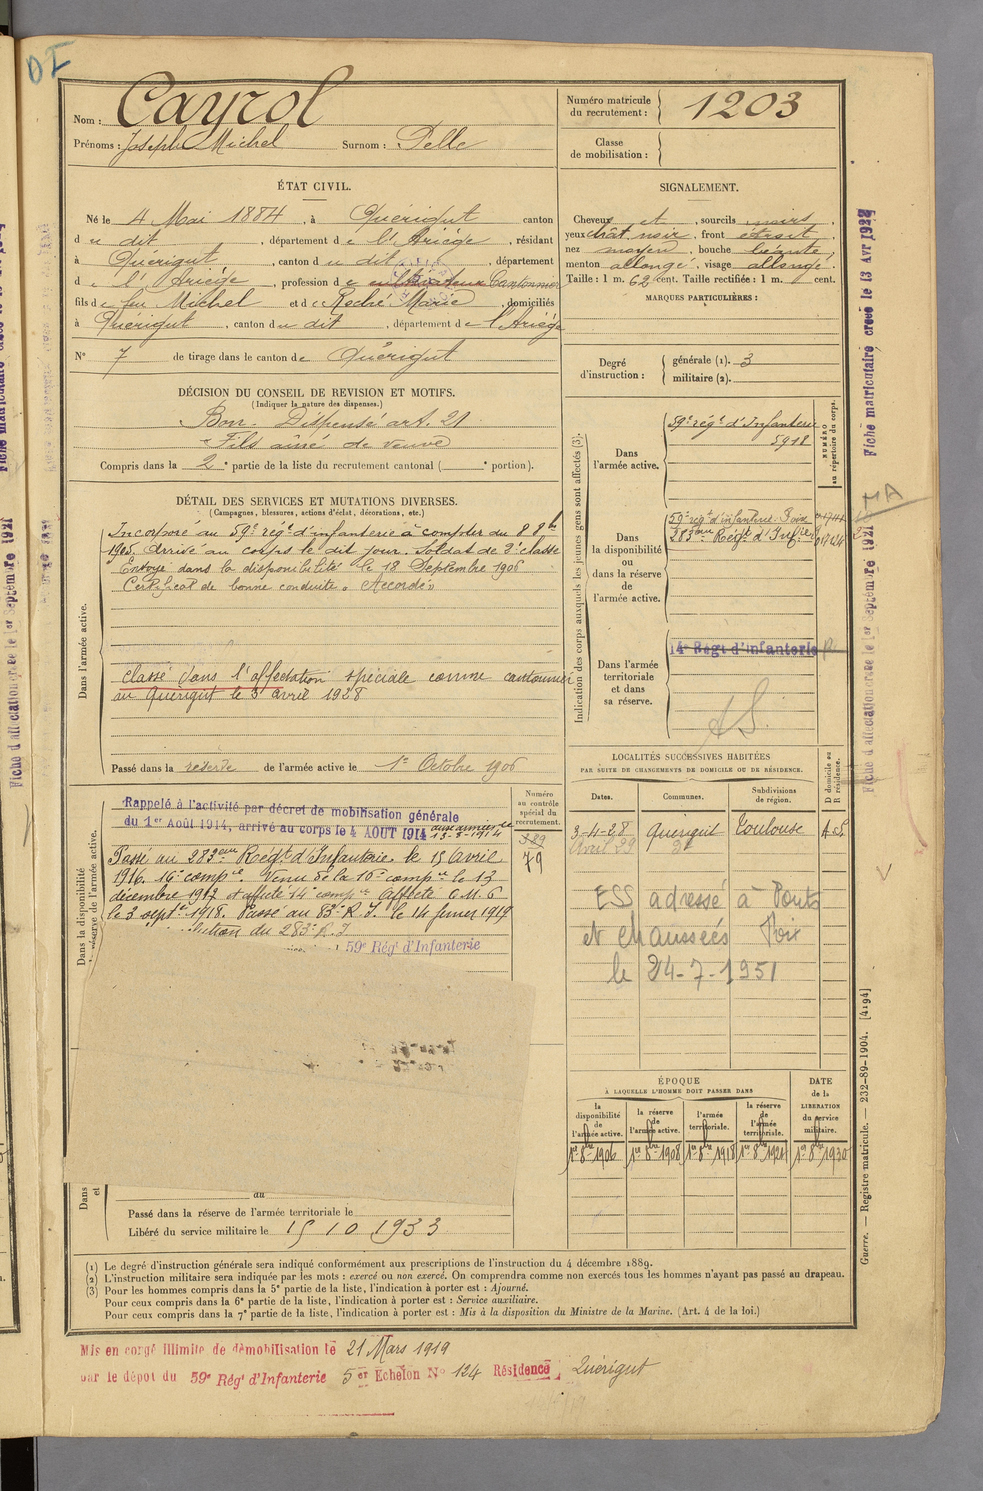 DI
Nom : Cayrol
Prénoms : Joseph Michel Surnom : Pelle
Numéro matricule du recrutement : 1203
Classe de mobilisation :
ÉTAT CIVIL.
Né le 4 Mai 1884, à Quérigut canton
du dit, département de l'Ariège, résidant
à Quérigut, canton du dit, département
de l'Ariège, profession de cultivateur Cantonnier
fils de feu Michel et de Reché Marie, domiciliés
à Quérigut, canton du dit, département de l'Ariège
N° 7 de tirage dans le canton de Quérigut
SIGNALEMENT.
Cheveux et, sourcils noirs,
yeux chât. noir, front étroit,
nez moyen, bouche béguté,
menton allongé, visage allongé.
Taille : 1 m. 62 cent. Taille rectifiée : 1 m. cent.
MARQUES PARTICULIÈRES :
Degré d'instruction : générale (1). 3
militaire (2).
DÉCISION DU CONSEIL DE REVISION ET MOTIFS.
(Indiquer la nature des dispenses.)
Bon. Dispensé art. 21
Fils aîné de veuve
Compris dans la 2e partie de la liste du recrutement cantonal ( e portion).
DÉTAIL DES SERVICES ET MUTATIONS DIVERSES.
(Campagnes, blessures, actions d'éclat, décorations, etc.)
Dans l'armée active.
Incorporé au 59e régt d'infanterie à compter du 8 8bre
1905. Arrivé au corps le dit jour. Soldat de 2e classe
Envoyé dans la disponibilité le 18 Septembre 1906
Certificat de bonne conduite "Accordé"
Classé dans l'affectation spéciale comme cantonnier
au Quérigut le 3 avril 1928
Passé dans la réserve de l'armée active le 1er Octobre 1906
Indication des corps auxquels les jeunes gens sont affectés (3).
NUMÉRO au répertoire du corps.
Dans l'armée active.
59e régt d'Infanterie
5918
Dans la disponibilité ou dans la réserve de l'armée active.
59e régt d'infanterie Foix
283eme Régt d'Infrie
Dans l'armée territoriale et dans sa réserve.
14e Régt d'Infanterie
A S.
Dans la disponibilité
réserve de l'armée active.
Numéro au contrôle spécial du recrutement.
389
79
Rappelé à l'activité par décret de mobilisation générale
du 1er Août 1914, arrivé au corps le 4 AOUT 1914
Passé au 283eme Régt d'Infanterie le 15 Avril
1916. 16e compie. Venu de la 16e compie le 13
décembre 1917 et affecté 14e compie Affecté C.M. 6
le 3 septe 1918. Passé au 83e R.I. le 14 février 1919
du 283e R.I
59e Régt d'Infanterie
LOCALITÉS SUCCESSIVES HABITÉES
PAR SUITE DE CHANGEMENTS DE DOMICILE OU DE RÉSIDENCE.
D domicile ou R résidence.
Dates. Communes. Subdivisions de région.
3-4-28 Quérigut Toulouse A.S.
Avril 29
ESS adressé à Ponts
et chaussées Foix
le 24-7-1951
ÉPOQUE
À LAQUELLE L'HOMME DOIT PASSER DANS
la disponibilité de l'armée active.
la réserve de l'armée active.
l'armée territoriale.
la réserve de l'armée territoriale.
DATE de la LIBERATION du service militaire.
1er 8bre 1906 1er 8bre 1908 1er 8bre 1918 1er 8bre 1924 1er 8bre 1930
Dans
et
au
Passé dans la réserve de l'armée territoriale le
Libéré du service militaire le 15 10 1933
(1) Le degré d'instruction générale sera indiqué conformément aux prescriptions de l'instruction du 4 décembre 1889.
(2) L'instruction militaire sera indiquée par les mots : exercé ou non exercé. On comprendra comme non exercés tous les hommes n'ayant pas passé au drapeau.
(3) Pour les hommes compris dans la 5e partie de la liste, l'indication à porter est : Ajourné.
Pour ceux compris dans la 6e partie de la liste, l'indication à porter est : Service auxiliaire.
Pour ceux compris dans la 7e partie de la liste, l'indication à porter est : Mis à la disposition du Ministre de la Marine. (Art. 4 de la loi.)
Mis en congé illimité de démobilisation le 21 Mars 1919
par le dépôt du 59e Régt d'Infanterie 5e Echelon No 124 Résidence Quérigut
Guerre. — Registre matricule. — 232-89-1904. [4194]
Fiche d'affectation créée le 1er Septembre 1921
Fiche matriculaire créée le 13 Avr 1922